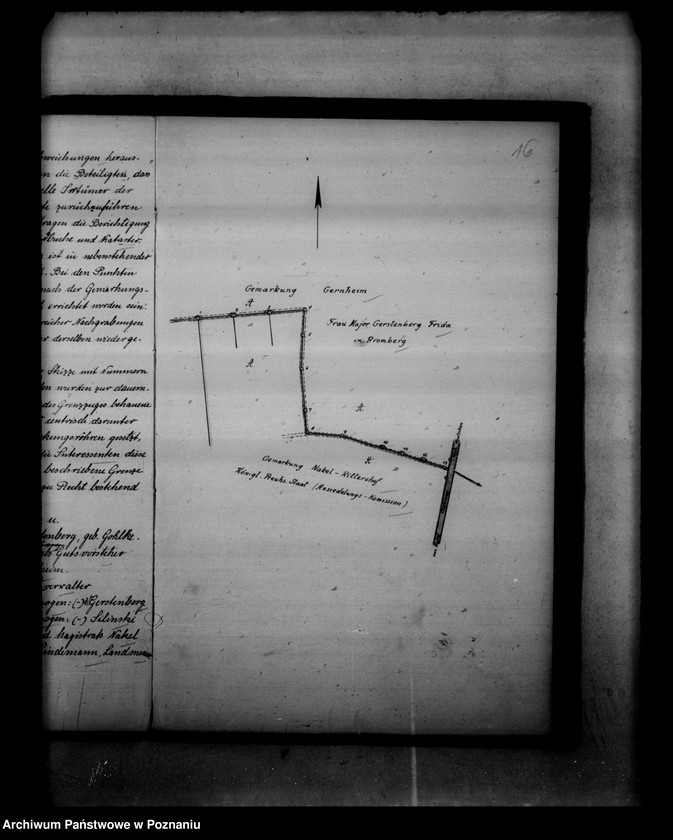 weichungen heraus-
n die Beteiligten, das
elle Irrtümer der
te zurückzuführen
tragen die Berichtigung
buche und Kataster.
ist in nebenstehender
Bei den Punkten
nach der Gemarkungs-
errichtet worden sein.
reicher Nachgrabungen
r derselben wiederge-
Skizze mit Nummern
en wurden zur dauern-
des Grenzzuges behauene
centrisch darunter
gesetzt,
die Interessenten diese
beschriebene Grenze
zu Recht bestehend
u.
tenberg, geb. Gohlke.
Gutsvorsteher
heim.
verwalter
ogen: (-) Gerstenberg
ogen: (-) Silinski
d. Magistrats Nakel
Lindemann, Landm
16
Gemarkung Gernheim
Frau Major Gerstenberg Frida
in Bromberg
Gemarkung Nakel-Rittershof
Königl. Preuß. Staat (Ansiedelungs-Komission)
Archiwum Państwowe w Poznaniu